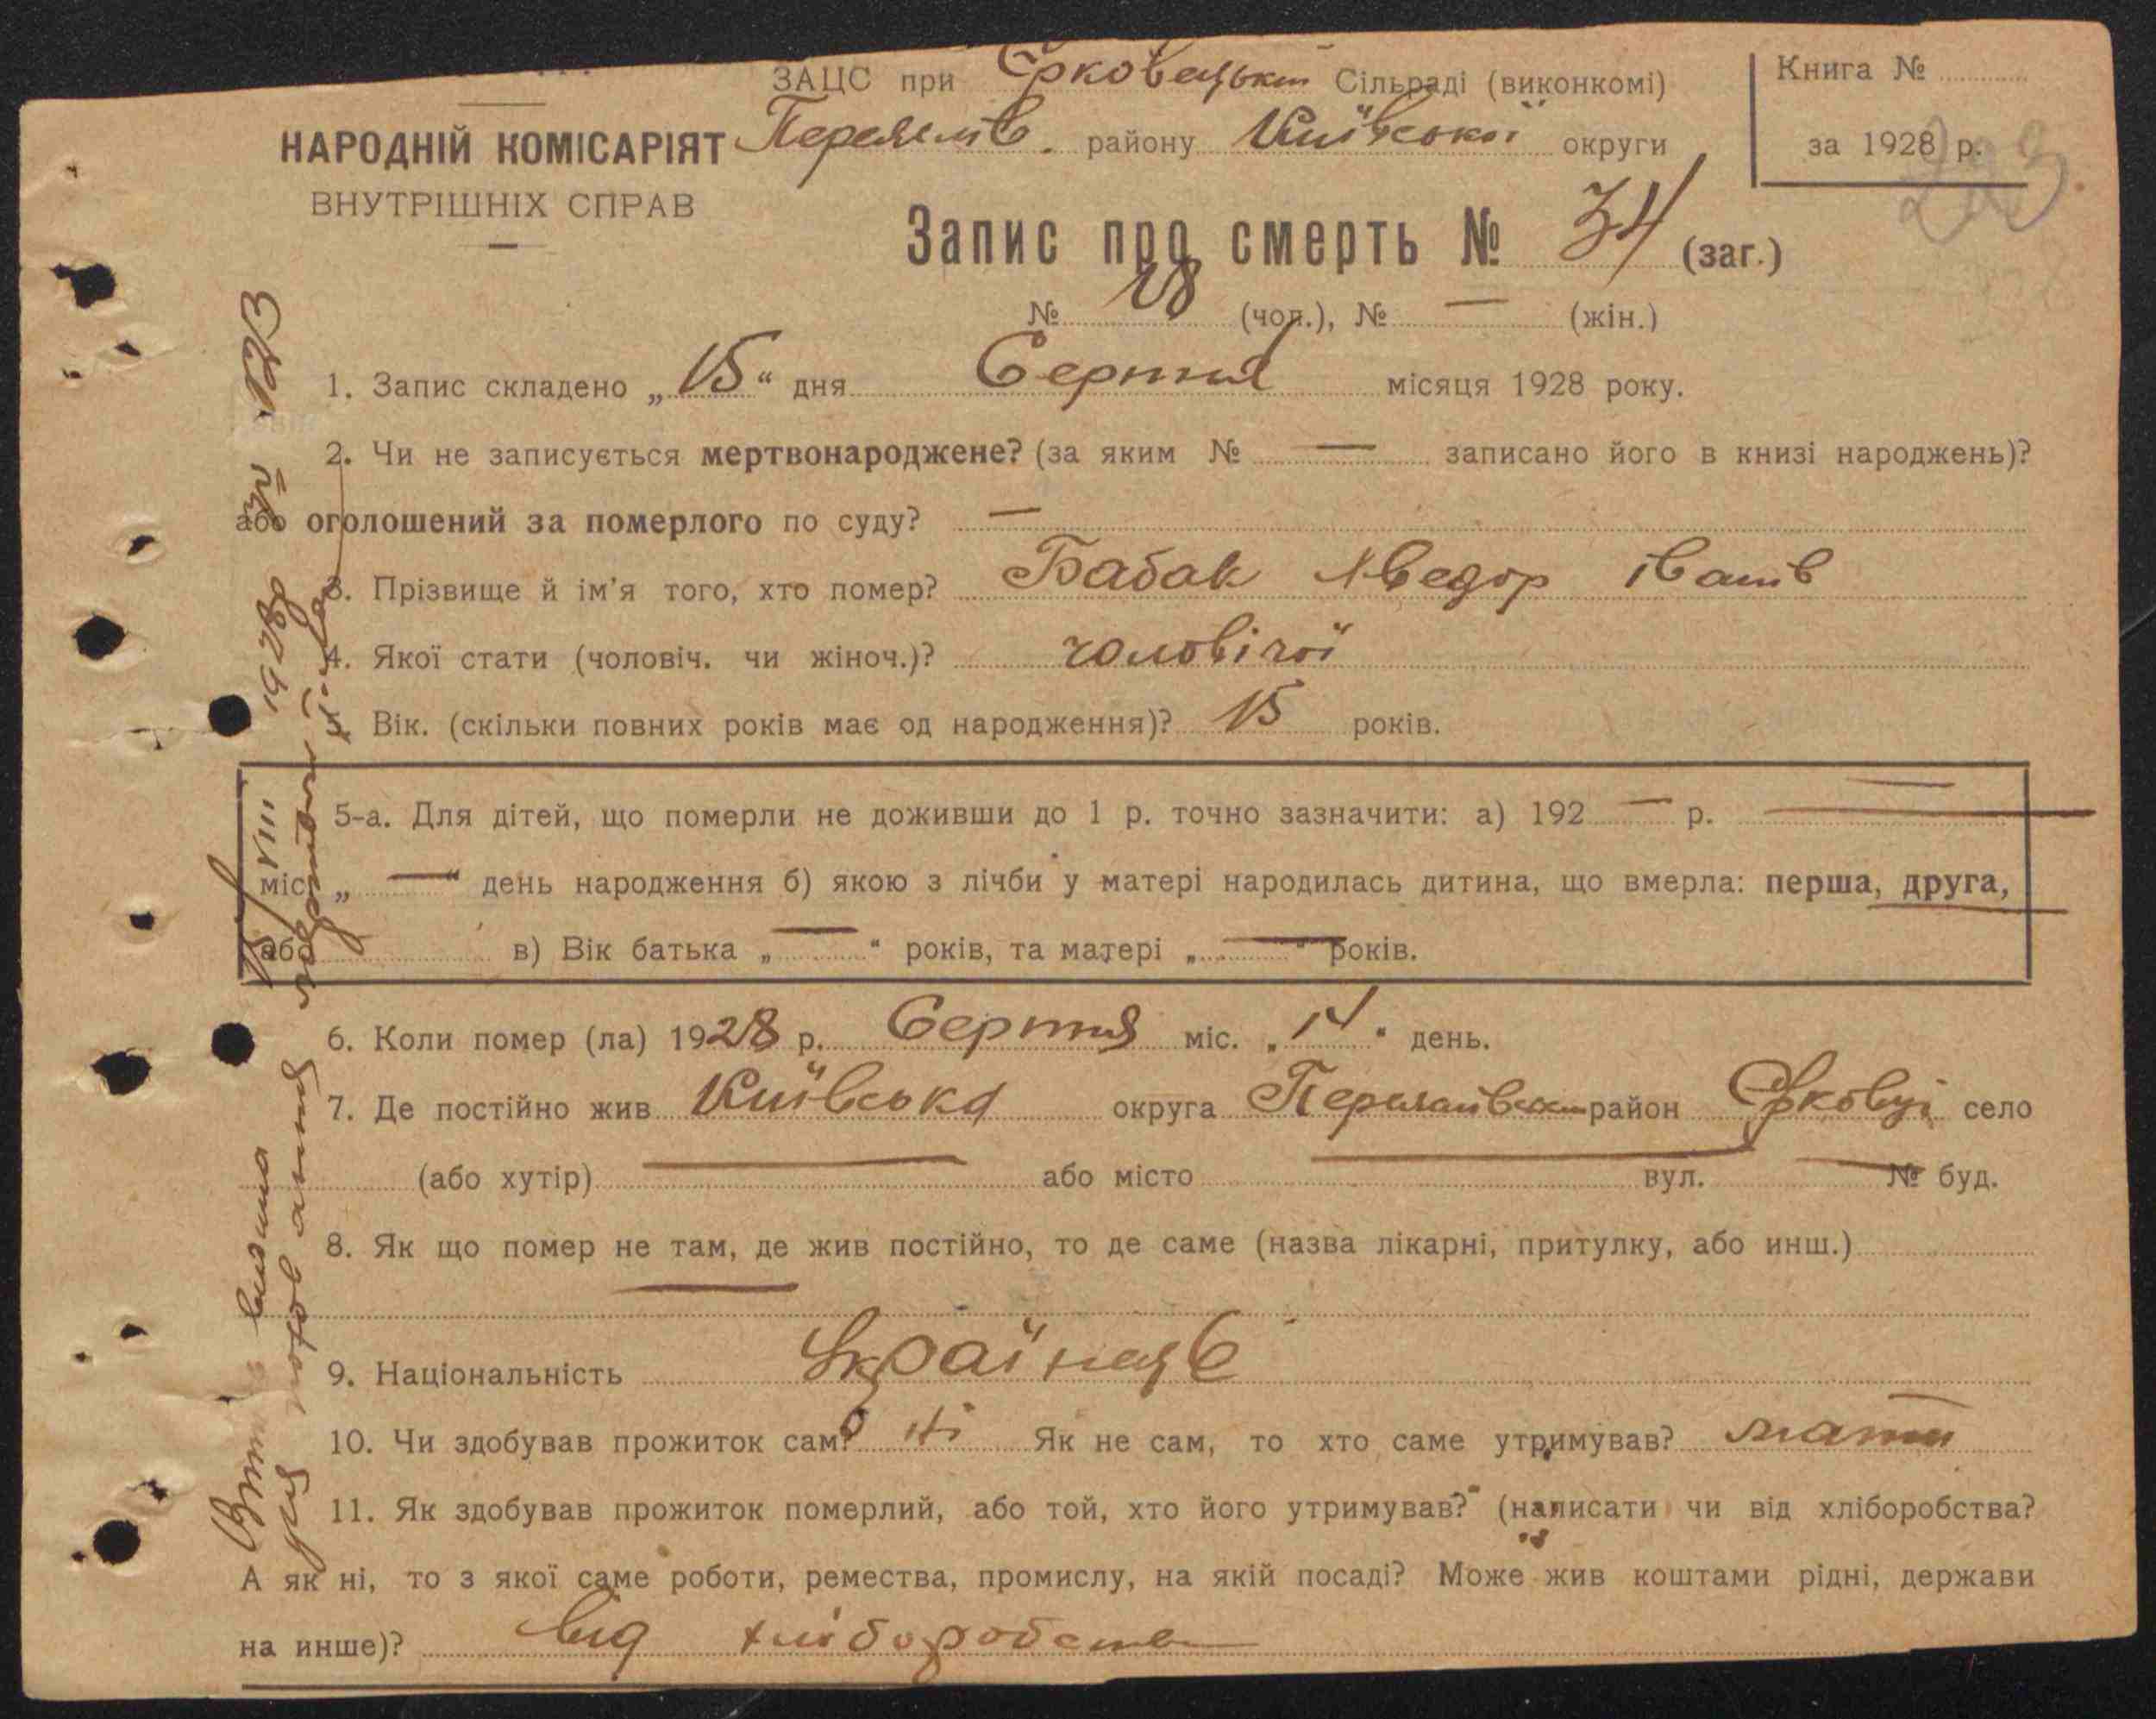 ЗАЦС при Єрковецькій Сільраді (виконкомі)
Книга №
НАРОДНІЙ КОМІСАРІЯТ
Переяслів. району Київської округи
за 1928 р.
ВНУТРІШНІХ СПРАВ
Запис про смерть № 34 (заг.)
№ 18 (чол.), № — (жін.)
1. Запис складено „15“ дня Серпня місяця 1928 року.
2. Чи не записується мертвонароджене? (за яким № — записано його в книзі народжень)?
або оголошений за померлого по суду? —
3. Прізвище й ім'я того, хто помер? Бабак Хведор Іванів
4. Якої стати (чоловіч. чи жіноч.)? чоловічої
5. Вік. (скільки повних років має од народження)? 15 років.
5-а. Для дітей, що померли не доживши до 1 р. точно зазначити: а) 192 — р. —
міс. „—“ день народження б) якою з лічби у матері народилась дитина, що вмерла: перша, друга,
або в) Вік батька „—“ років, та матері „—“ років.
6. Коли помер (ла) 1928 р. Серпня міс. „14“ день.
7. Де постійно жив Київська округа район Єрковці село
(або хутір) — або місто — вул. — № буд.
8. Як що помер не там, де жив постійно, то де саме (назва лікарні, притулку, або инш.)
—
9. Національність Українець
10. Чи здобував прожиток сам? ні Як не сам, то хто саме утримував? мати
11. Як здобував прожиток померлий, або той, хто його утримував? (написати чи від хліборобства?
А як ні, то з якої саме роботи, ремества, промислу, на якій посаді? Може жив коштами рідні, держави
на инше)? від хліборобства